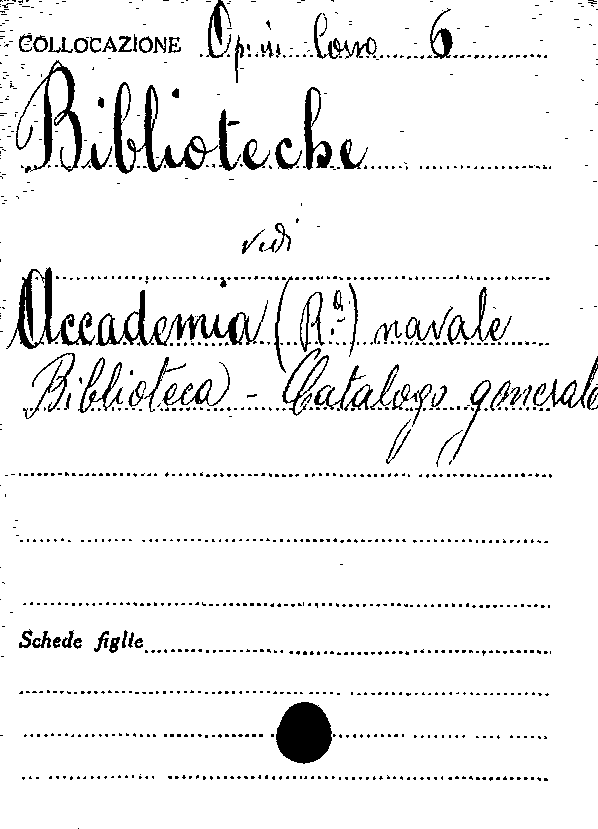 COLLOCAZIONE Op. in Corso 6
Biblioteche
vedi
Accademia (R.ª) navale
Biblioteca - Catalogo generale
Schede figlie